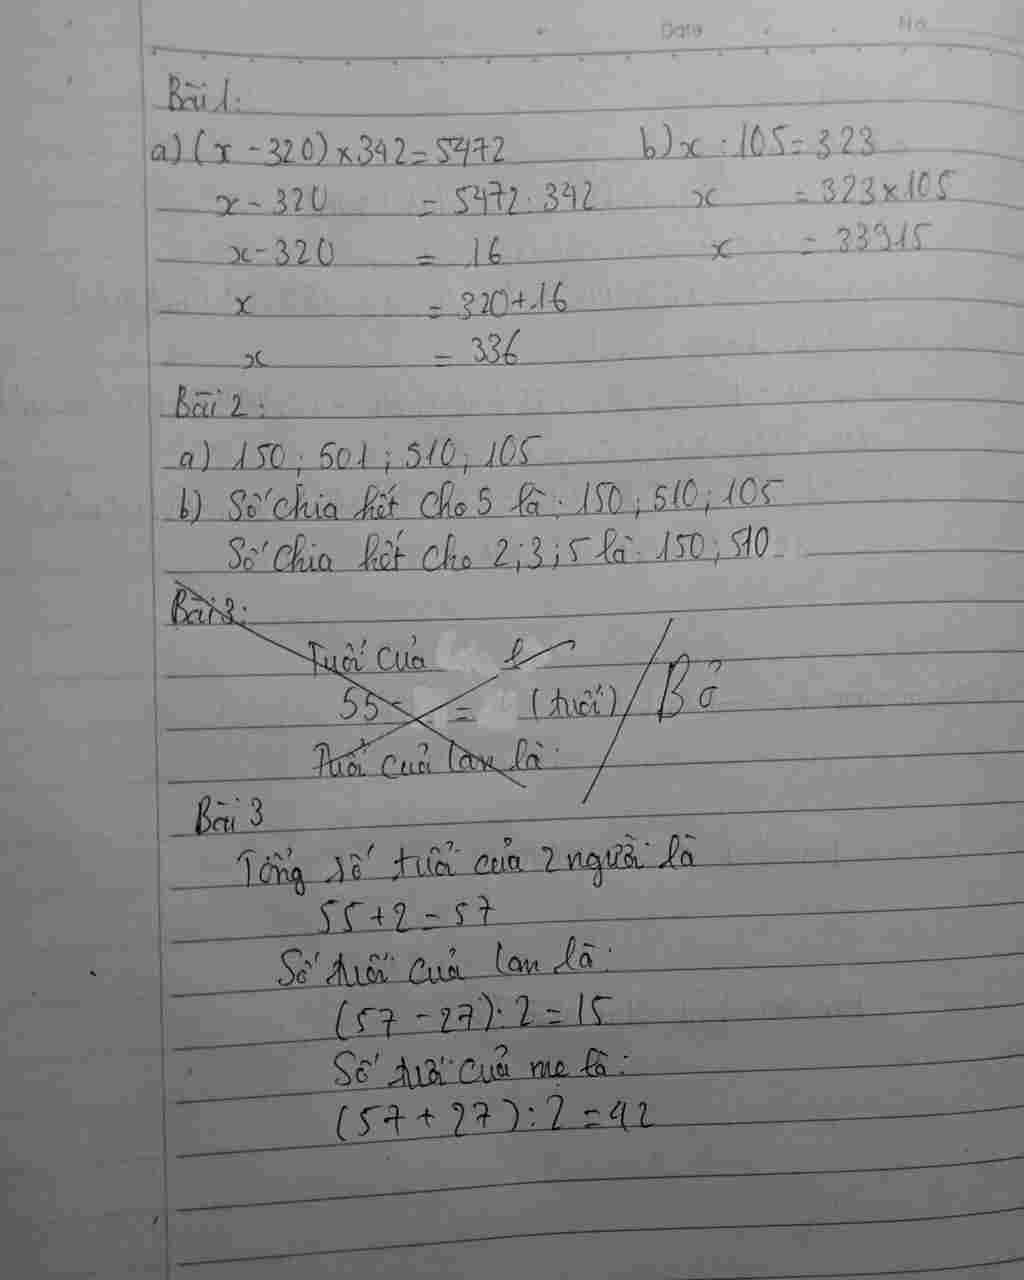 Date No
Bài 1:
a) (x - 320) x 342 = 5472 b) x : 105 = 323
x - 320 = 5472 : 342 x = 323 x 105
x - 320 = 16 x = 33915
x = 320 + 16
x = 336
Bài 2:
a) 150; 501; 510; 105
b) Số chia hết cho 5 là: 150; 510; 105
Số chia hết cho 2; 3; 5 là: 150; 510
Bài 3:
Tuổi của
55 - = (tuổi) Bỏ
Tuổi của lan là:
Bài 3
Tổng số tuổi của 2 người là
55 + 2 = 57
Số tuổi của lan là:
(57 - 27) : 2 = 15
Số tuổi của mẹ là:
(57 + 27) : 2 = 42